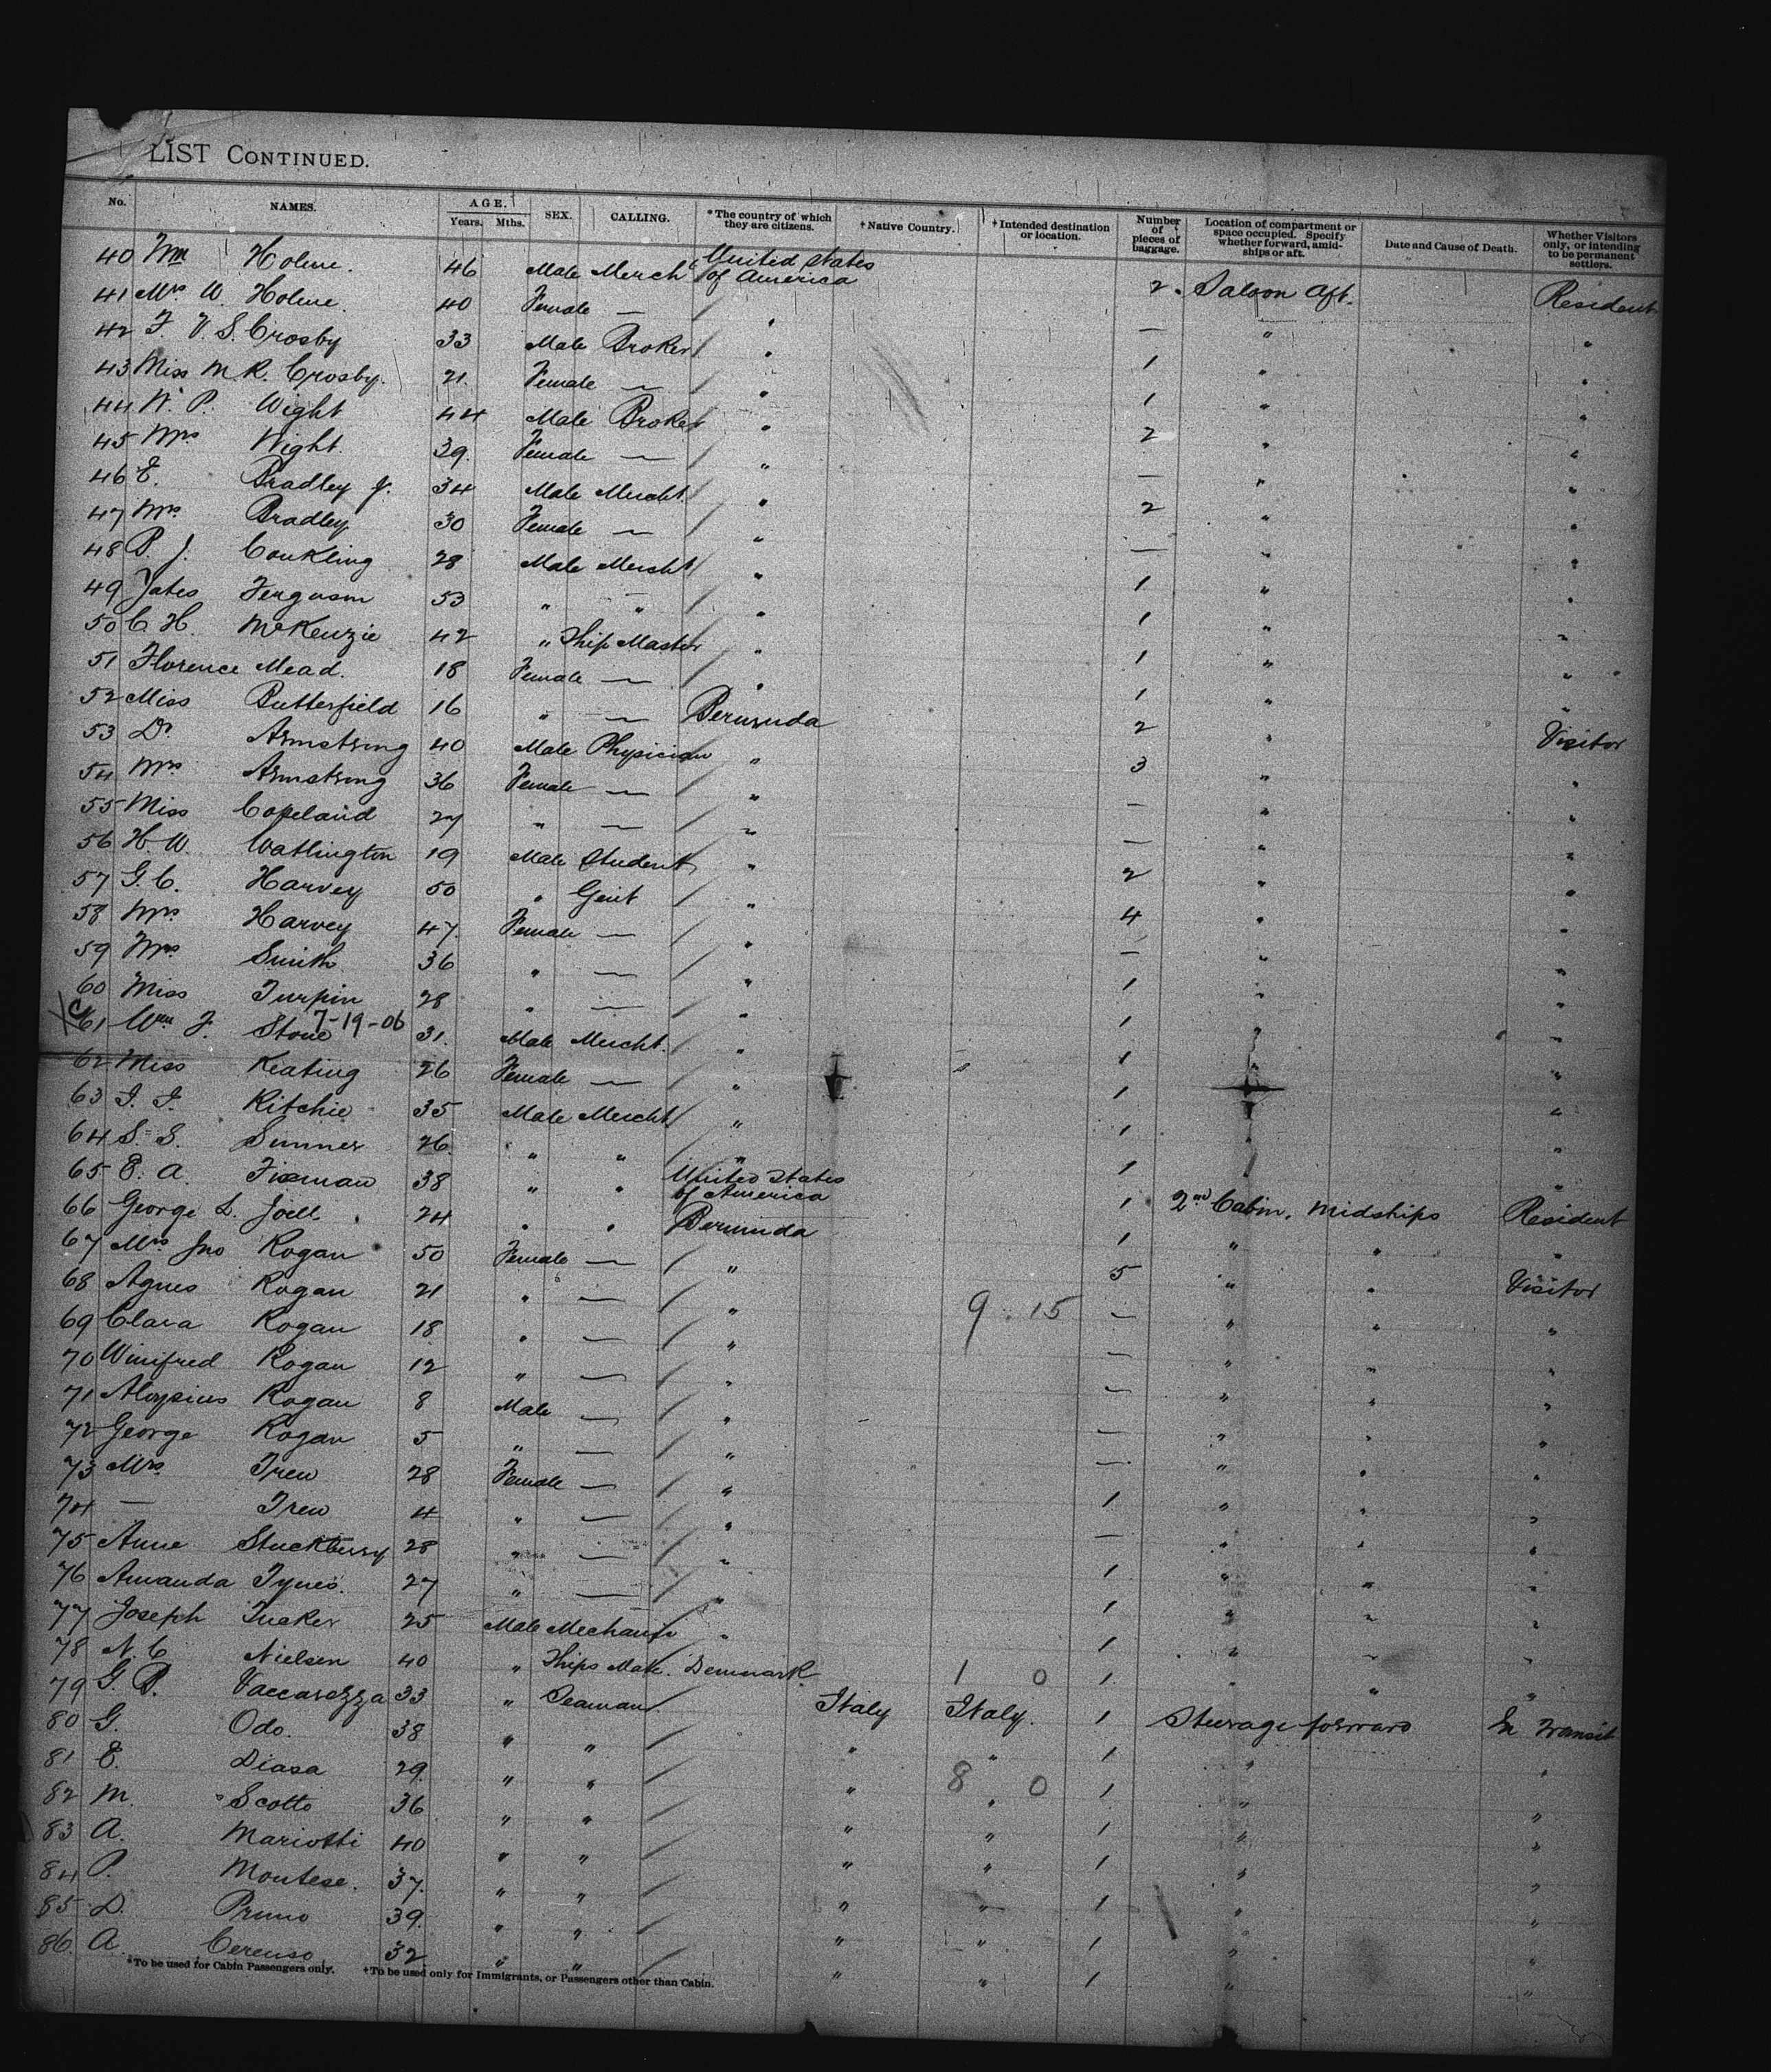 LIST CONTINUED.
No. NAMES. AGE. Years. Mths. SEX. CALLING. *The country of which they are citizens. †Native Country. †Intended destination or location. Number of pieces of baggage. Location of compartment or space occupied. Specify whether forward, amidships or aft. Date and Cause of Death. Whether Visitors only, or intending to be permanent settlers.
40 Wm Holme. 46 Male Merch United States of America 2. Saloon Aft. Resident
41 Mrs W. Holme. 40 Female — " — " "
42 F. V. S. Crosby 33 Male Broker " 1 " "
43 Miss M. R. Crosby. 21. Female — " 1 " "
44 W. P. Wight 44 Male Broker " 2 " "
45 Mrs Wight. 39. Female — " — " "
46 E. Bradley Jr. 34 Male Mercht. " 2 " "
47 Mrs Bradley 30 Female — " — " "
48 P. J. Conkling 28 Male Mercht " 1 " "
49 Yates Ferguson 53 " " " 1 " "
50 C. H. McKenzie 42 " Ship Master " 1 " "
51 Florence Mead. 18 Female — " 1 " "
52 Miss Butterfield 16 " — Bermuda 2 " Visitor
53 Dr Armstrong 40 Male Physician " 3 " "
54 Mrs Armstrong 36 Female — " — " "
55 Miss Copeland 27 " — " — " "
56 H. W. Watlington 19 Male Student " 2 " "
57 G. C. Harvey 50 " Gent " 4 " "
58 Mrs Harvey 47. Female — " — " "
59 Mrs Smith 36 " — " 1 " "
60 Miss Turpin 28 " — " 1 " "
7-19-06
61 Wm J. Stone 31. Male Mercht. " 1 " "
62 Miss Keating 26 Female — " 1 " "
63 J. J. Ritchie 35 Male Mercht " 1 " "
64 S. S. Sumner 26. " " " 1 " "
65 E. A. 38 " " United States of America 1 2nd Cabin, Midships Resident
66 George L. Joell 24 " " Bermuda 1 " " "
67 Mrs Jno Rogan 50 Female — " 5 " " Visitor
68 Agnes Rogan 21 " — " 9 15 — " " "
69 Clara Rogan 18 " — " — " " "
70 Winifred Rogan 12 " — " — " " "
71 Aloysius Rogan 8 Male — " — " " "
72 George Rogan 5 " — " — " " "
73 Mrs. Trew 28 Female — " 1 " " "
74 — Trew 4 " — " — " " "
75 Anne Stuckbury 28 " — " 1 " " "
76 Amanda Tynes. 27 " — " 1 " " "
77 Joseph Tucker 25 Male Mechanic " 1 " " "
78 N. C. Nielsen 40 " Ships Mate. Denmark 1 0 1 " " "
79 G. B. Vaccarezza 33 " Seaman Italy Italy. 1 Steerage forward In Transit
80 G. Odo. 38 " " " " 1 " "
81 E. Diasa 29. " " " 8 " 0 1 " "
82 M. Scotto 36 " " " " 1 " "
83 A. Mariotti 40 " " " " 1 " "
84 P. Montese. 37. " " " " 1 " "
85 D. Pruno 39. " " " " 1 " "
86. A. Cerenso 32 " " " " 1 " "
*To be used for Cabin Passengers only. †To be used only for Immigrants, or Passengers other than Cabin.